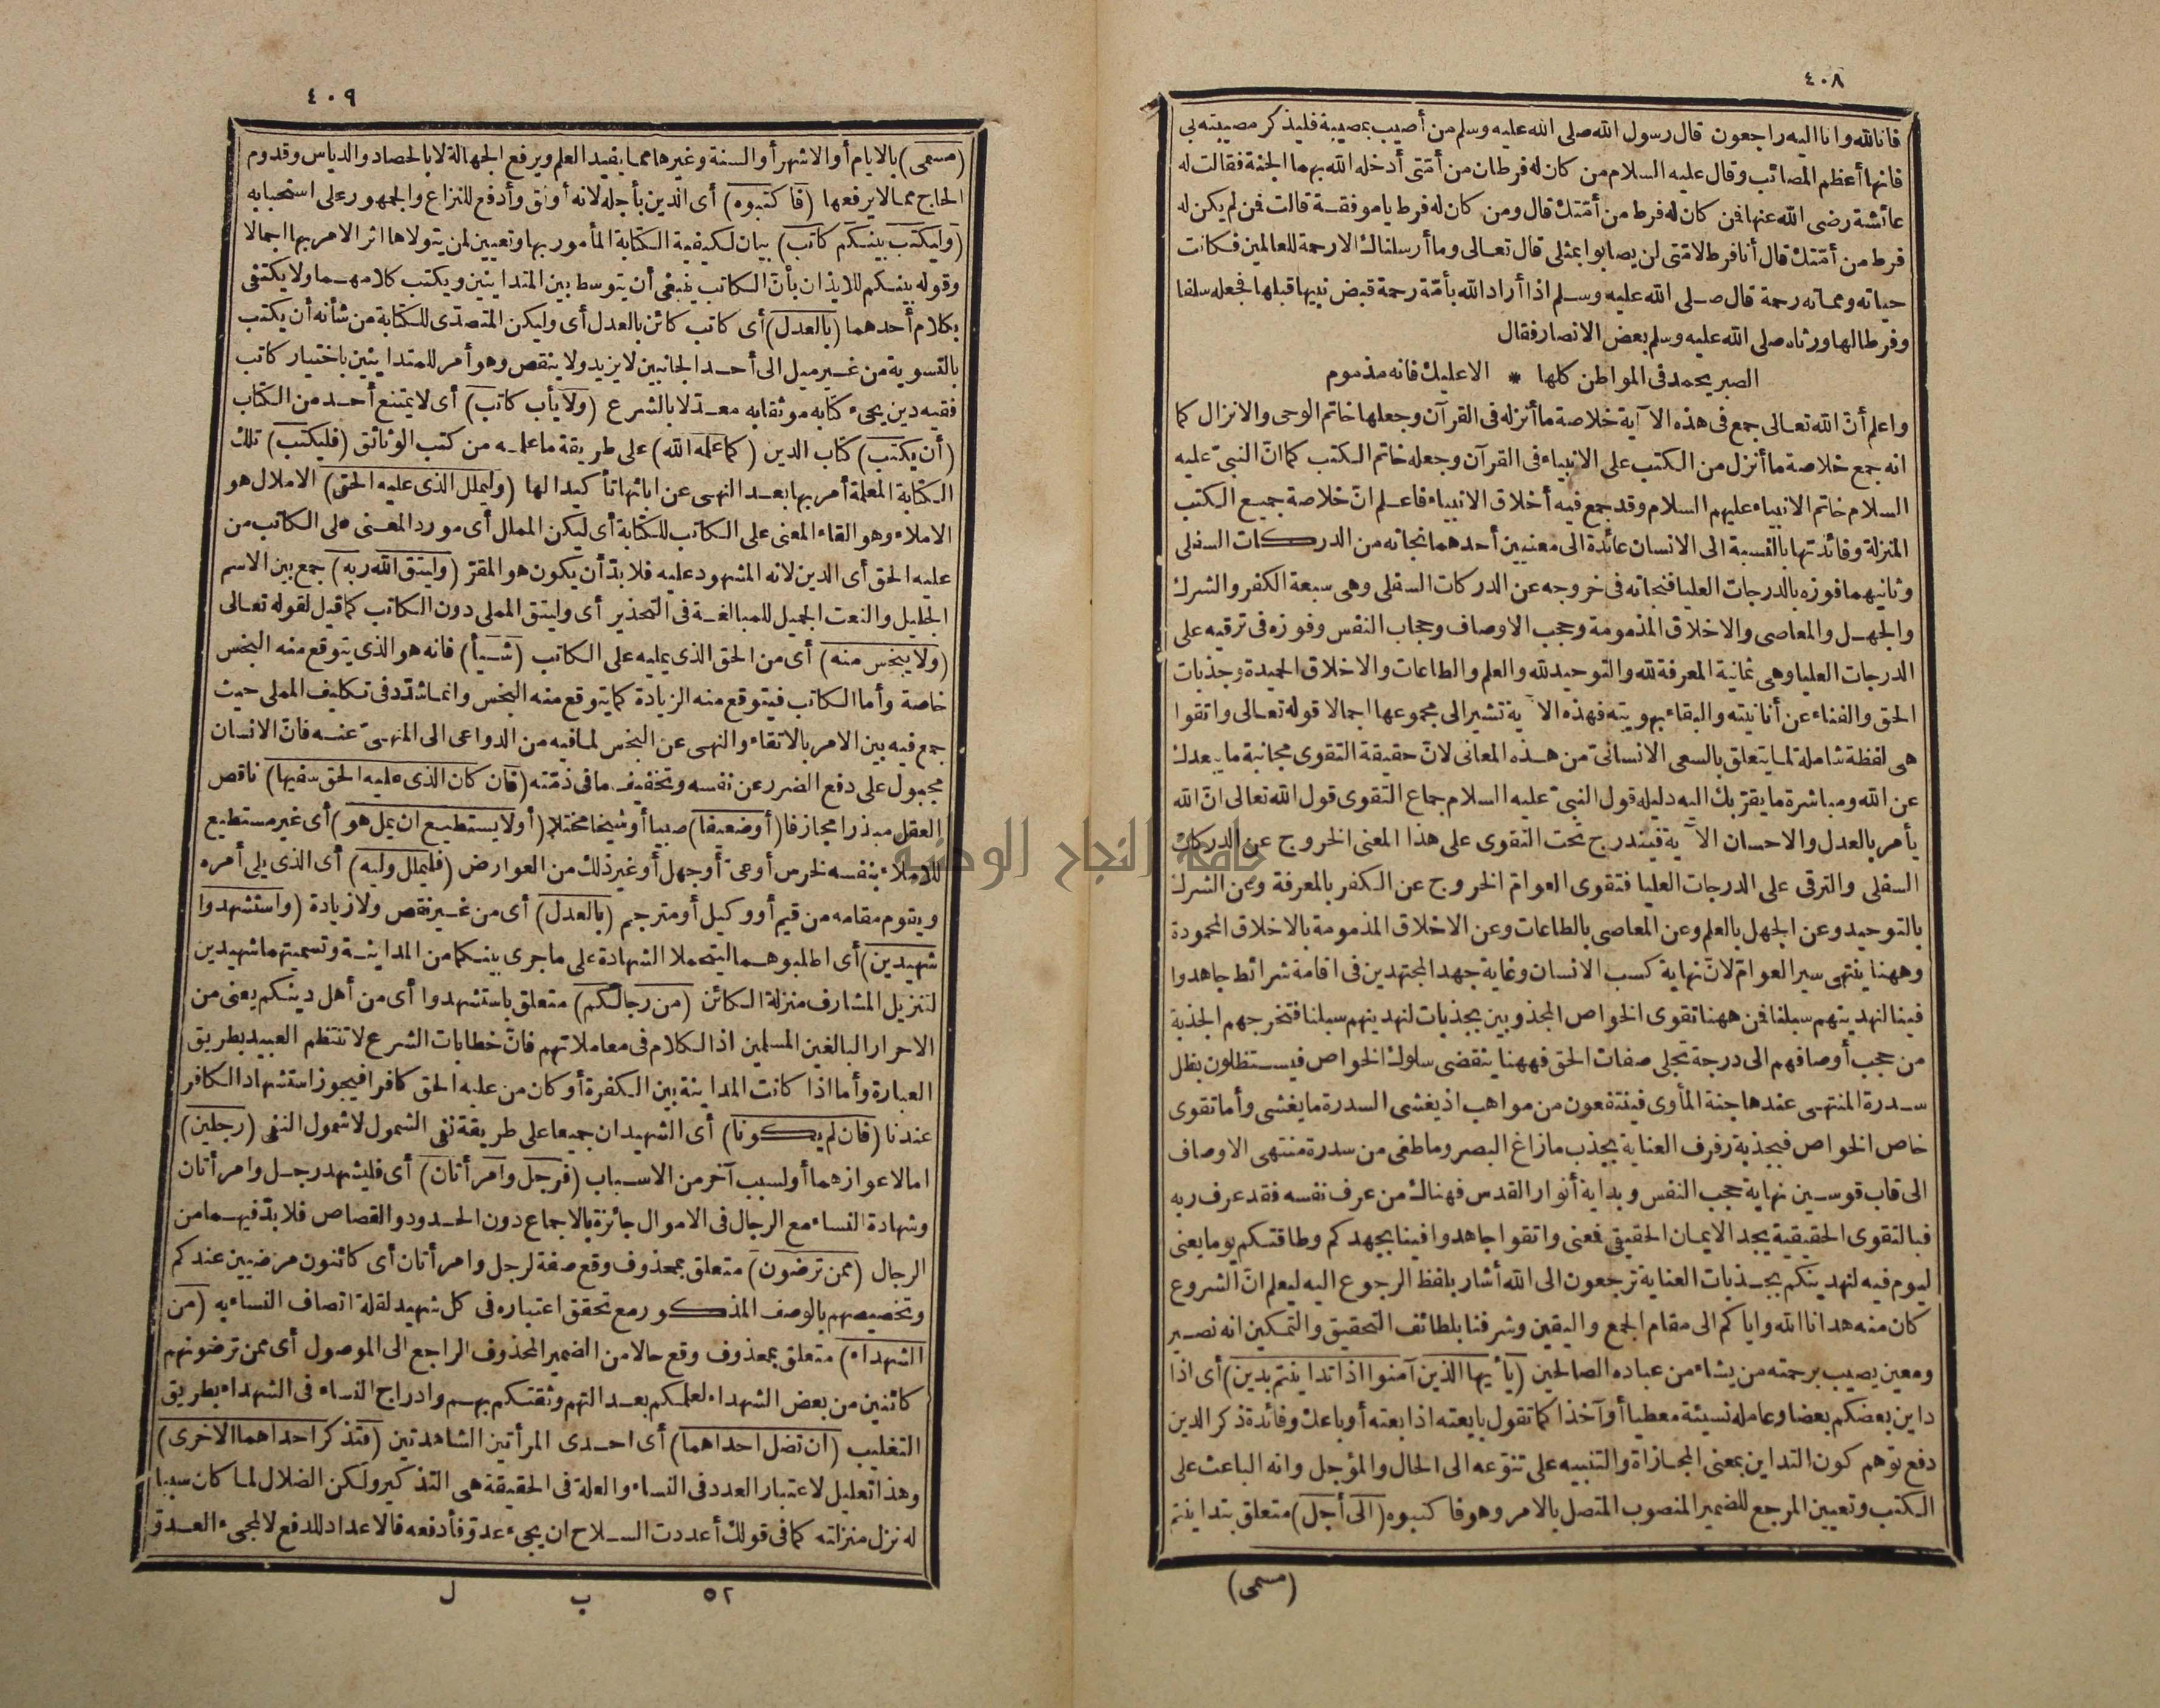 ٤٠٨
فانا لله وانا اليه راجعون قال رسول الله صلى الله عليه وسلم من أصيب بمصيبة فليذكر مصيبته بى
فانها أعظم المصائب وقال عليه السلام من كان له فرطان من أمتى أدخله الله بهما الجنة فقالت له
عائشة رضى الله عنها فمن كان له فرط من أمّتك قال ومن كان له فرط يا موفقة قالت فمن لم يكن له
فرط من أمّتك قال أنا فرط لامّتى لن يصابوا بمثلى قال تعالى وما أرسلناك الا رحمة للعالمين فكانت
حياته ومماته رحمة قال صلى الله عليه وسلم اذا أراد الله بأمّة رحمة قبض نبيها قبلها فجعله سلفا
وفرطا لها ورثاه صلى الله عليه وسلم بعض الانصار فقال
الصبر يحمد فى المواطن كلها * الا عليك فانه مذموم
واعلم أنّ الله تعالى جمع فى هذه الآية خلاصة ما أنزله فى القرآن وجعلها خاتم الوحى والانزال كما
انه جمع خلاصة ما أنزل من الكتب على الانبياء فى القرآن وجعله خاتم الكتب كما انّ النبىّ عليه
السلام خاتم الانبياء عليهم السلام وقد جمع فيه أخلاق الانبياء فاعلم انّ خلاصة جميع الكتب
المنزلة وفائدتها بالنسبة الى الانسان عائدة الى معنيين أحدهما نجاته من الدركات السفلى
وثانيهما فوزه بالدرجات العليا فنجاته فى خروجه عن الدركات السفلى وهى سبعة الكفر والشرك
والجهل والمعاصى والاخلاق المذمومة وحجب الاوصاف وحجاب النفس وفوزه فى ترقيه على
الدرجات العليا وهى ثمانية المعرفة لله والتوحيد لله والعلم والطاعات والاخلاق الحميدة وجذبات
الحق والفناء عن أنانيته والبقاء بهويته فهذه الآية تشير الى مجموعها اجمالا قوله تعالى واتقوا
هى لفظة شاملة لما يتعلق بالسعى الانسانىّ من هذه المعانى لانّ حقيقة التقوى مجانبة ما يبعدك
عن الله ومباشرة ما يقرّبك اليه دليله قول النبىّ عليه السلام جماع التقوى قول الله تعالى انّ الله
يأمر بالعدل والاحسان الآية فيندرج تحت التقوى على هذا المعنى الخروج عن الدركات
السفلى والترقى على الدرجات العليا فتقوى العوامّ الخروج عن الكفر بالمعرفة وعن الشرك
بالتوحيد وعن الجهل بالعلم وعن المعاصى بالطاعات وعن الاخلاق المذمومة بالاخلاق المحمودة
وههنا ينتهى سير العوامّ لانّ نهاية كسب الانسان وغاية جهد المجتهدين فى اقامة شرائط جاهدوا
فينا لنهدينهم سبلنا فمن ههنا تقوى الخواص المجذوبين بجذبات لنهدينهم سبلنا فتخرجهم الجذبة
من حجب أوصافهم الى درجة تجلى صفات الحق فههنا ينقضى سلوك الخواص فيستظلون بظل
سدرة المنتهى عندها جنة المأوى فينتفعون من مواهب اذ يغشى السدرة ما يغشى وأما تقوى
خاص الخواص فبجذبة رفرف العناية بجذب ما زاغ البصر وما طغى من سدرة منتهى الاوصاف
الى قاب قوسين نهاية حجب النفس وبداية أنوار القدس فهناك من عرف نفسه فقد عرف ربه
فبالتقوى الحقيقية يجد الايمان الحقيقى فمعنى واتقوا جاهدوا فينا بجهدكم وطاقتكم يوما يعنى
ليوم فيه لنهدينكم بجذبات العناية ترجعون الى الله أشار بلفظ الرجوع اليه ليعلم انّ الشروع
كان منه هدانا الله واياكم الى مقام الجمع واليقين وشرفنا بلطائف التحقيق والتمكين انه نصير
ومعين يصيب برحمته من يشاء من عباده الصالحين (يا أيها الذين آمنوا اذا تداينتم بدين) أى اذا
داين بعضكم بعضا وعامله نسيئة معطيا أو آخذا كما تقول بايعته اذا بعته أو باعك وفائدة ذكر الدين
دفع توهم كون التداين بمعنى المجازاة والتنبيه على تنوّعه الى الحال والمؤجل وانه الباعث على
الكتب وتعيين المرجع للضمير المنصوب المتصل بالامر وهو فاكتبوه (الى أجل) متعلق بتداينتم
(مسمى)
٤٠٩
(مسمى) بالايام أو الاشهر أو السنة وغيرها مما يفيد العلم ويرفع الجهالة لا بالحصاد والدياس وقدوم
الحاج مما لا يرفعها (فاكتبوه) أى الدين بأجله لانه أوثق وأدفع للنزاع والجمهور على استحبابه
(وليكتب بينكم كاتب) بيان لكيفية الكتابة المأمور بها وتعيين لمن يتولاها اثر الامر بها اجمالا
وقوله بينكم للايذان بأنّ الكاتب ينبغى أن يتوسط بين المتداينين ويكتب كلامهما ولا يكتفى
بكلام أحدهما (بالعدل) أى كاتب كائن بالعدل أى وليكن المتصدّى للكتابة من شأنه أن يكتب
بالتسوية من غير ميل الى أحد الجانبين لا يزيد ولا ينقص وهو أمر للمتداينين باختيار كاتب
فقيه دين يجىء كتابه موثقا به معدّلا بالشرع (ولا يأب كاتب) أى لا يمتنع أحد من الكتاب
(أن يكتب) كتاب الدين (كما علمه الله) على طريقة ما علمه من كتب الوثائق (فليكتب) تلك
الكتابة المعلمة أمر بها بعد النهى عن ابائها تأكيدا لها (وليملل الذى عليه الحق) الاملال هو
الاملاء وهو القاء المعنى على الكاتب للكتابة أى ليكن المملل أى مورد المعنى على الكاتب من
عليه الحق أى الدين لانه المشهود عليه فلا بدّ أن يكون هو المقرّ (وليتق الله ربه) جمع بين الاسم
الجليل والنعت الجميل للمبالغة فى التحذير أى وليتق المملى دون الكاتب كما قيل لقوله تعالى
(ولا يبخس منه) أى من الحق الذى يمليه على الكاتب (شيأ) فانه هو الذى يتوقع منه البخس
خاصة وأما الكاتب فيتوقع منه الزيادة كما يتوقع منه البخس وانما شدّد فى تكليف المملى حيث
جمع فيه بين الامر بالاتقاء والنهى عن البخس لما فيه من الدواعى الى المنهىّ عنه فانّ الانسان
مجبول على دفع الضرر عن نفسه وتخفيف ما فى ذمّته (فان كان الذى عليه الحق سفيها) ناقص
العقل مبذرا مجازفا (أو ضعيفا) صبيا أو شيخا مختلا (أو لا يستطيع ان يمل هو) أى غير مستطيع
للاملاء بنفسه لخرس أو عىّ أو جهل أو غير ذلك من العوارض (فليملل وليه) أى الذى يلى أمره
ويقوم مقامه من قيم أو وكيل أو مترجم (بالعدل) أى من غير نقص ولا زيادة (واستشهدوا
شهيدين) أى اطلبوهما ليتحملا الشهادة على ما جرى بينكما من المداينة وتسميتهما شهيدين
لتنزيل المشارف منزلة الكائن (من رجالكم) متعلق باستشهدوا أى من أهل دينكم يعنى من
الاحرار البالغين المسلمين اذ الكلام فى معاملاتهم فانّ خطابات الشرع لا تنتظم العبيد بطريق
العبارة وأما اذا كانت المداينة بين الكفرة أو كان من عليه الحق كافرا فيجوز استشهاد الكافر
عندنا (فان لم يكونا) أى الشهيدان جميعا على طريقة نفى الشمول لا شمول النفى (رجلين)
اما لاعوازهما أو لسبب آخر من الاسباب (فرجل وامرأتان) أى فليشهد رجل وامرأتان
وشهادة النساء مع الرجال فى الاموال جائزة بالاجماع دون الحدود والقصاص فلا بدّ فيهما من
الرجال (ممن ترضون) متعلق بمحذوف وقع صفة لرجل وامرأتان أى كائنون مرضيين عندكم
وتخصيصهم بالوصف المذكور مع تحقق اعتباره فى كل شهيد لقلة اتصاف النساء به (من
الشهداء) متعلق بمحذوف وقع حالا من الضمير المحذوف الراجع الى الموصول أى ممن ترضونهم
كائنين من بعض الشهداء لعلمكم بعدالتهم وثقتكم بهم وادراج النساء فى الشهداء بطريق
التغليب (ان تضل احداهما) أى احدى المرأتين الشاهدتين (فتذكر احداهما الاخرى)
وهذا تعليل لاعتبار العدد فى النساء والعلة فى الحقيقة هى التذكير ولكن الضلال لما كان سببا
له نزل منزلته كما فى قولك أعددت السلاح ان يجىء عدوّ فأدفعه فالاعداد للدفع لا لمجىء العدوّ
٥٢ ب ل
جامعة النجاح الوطنية